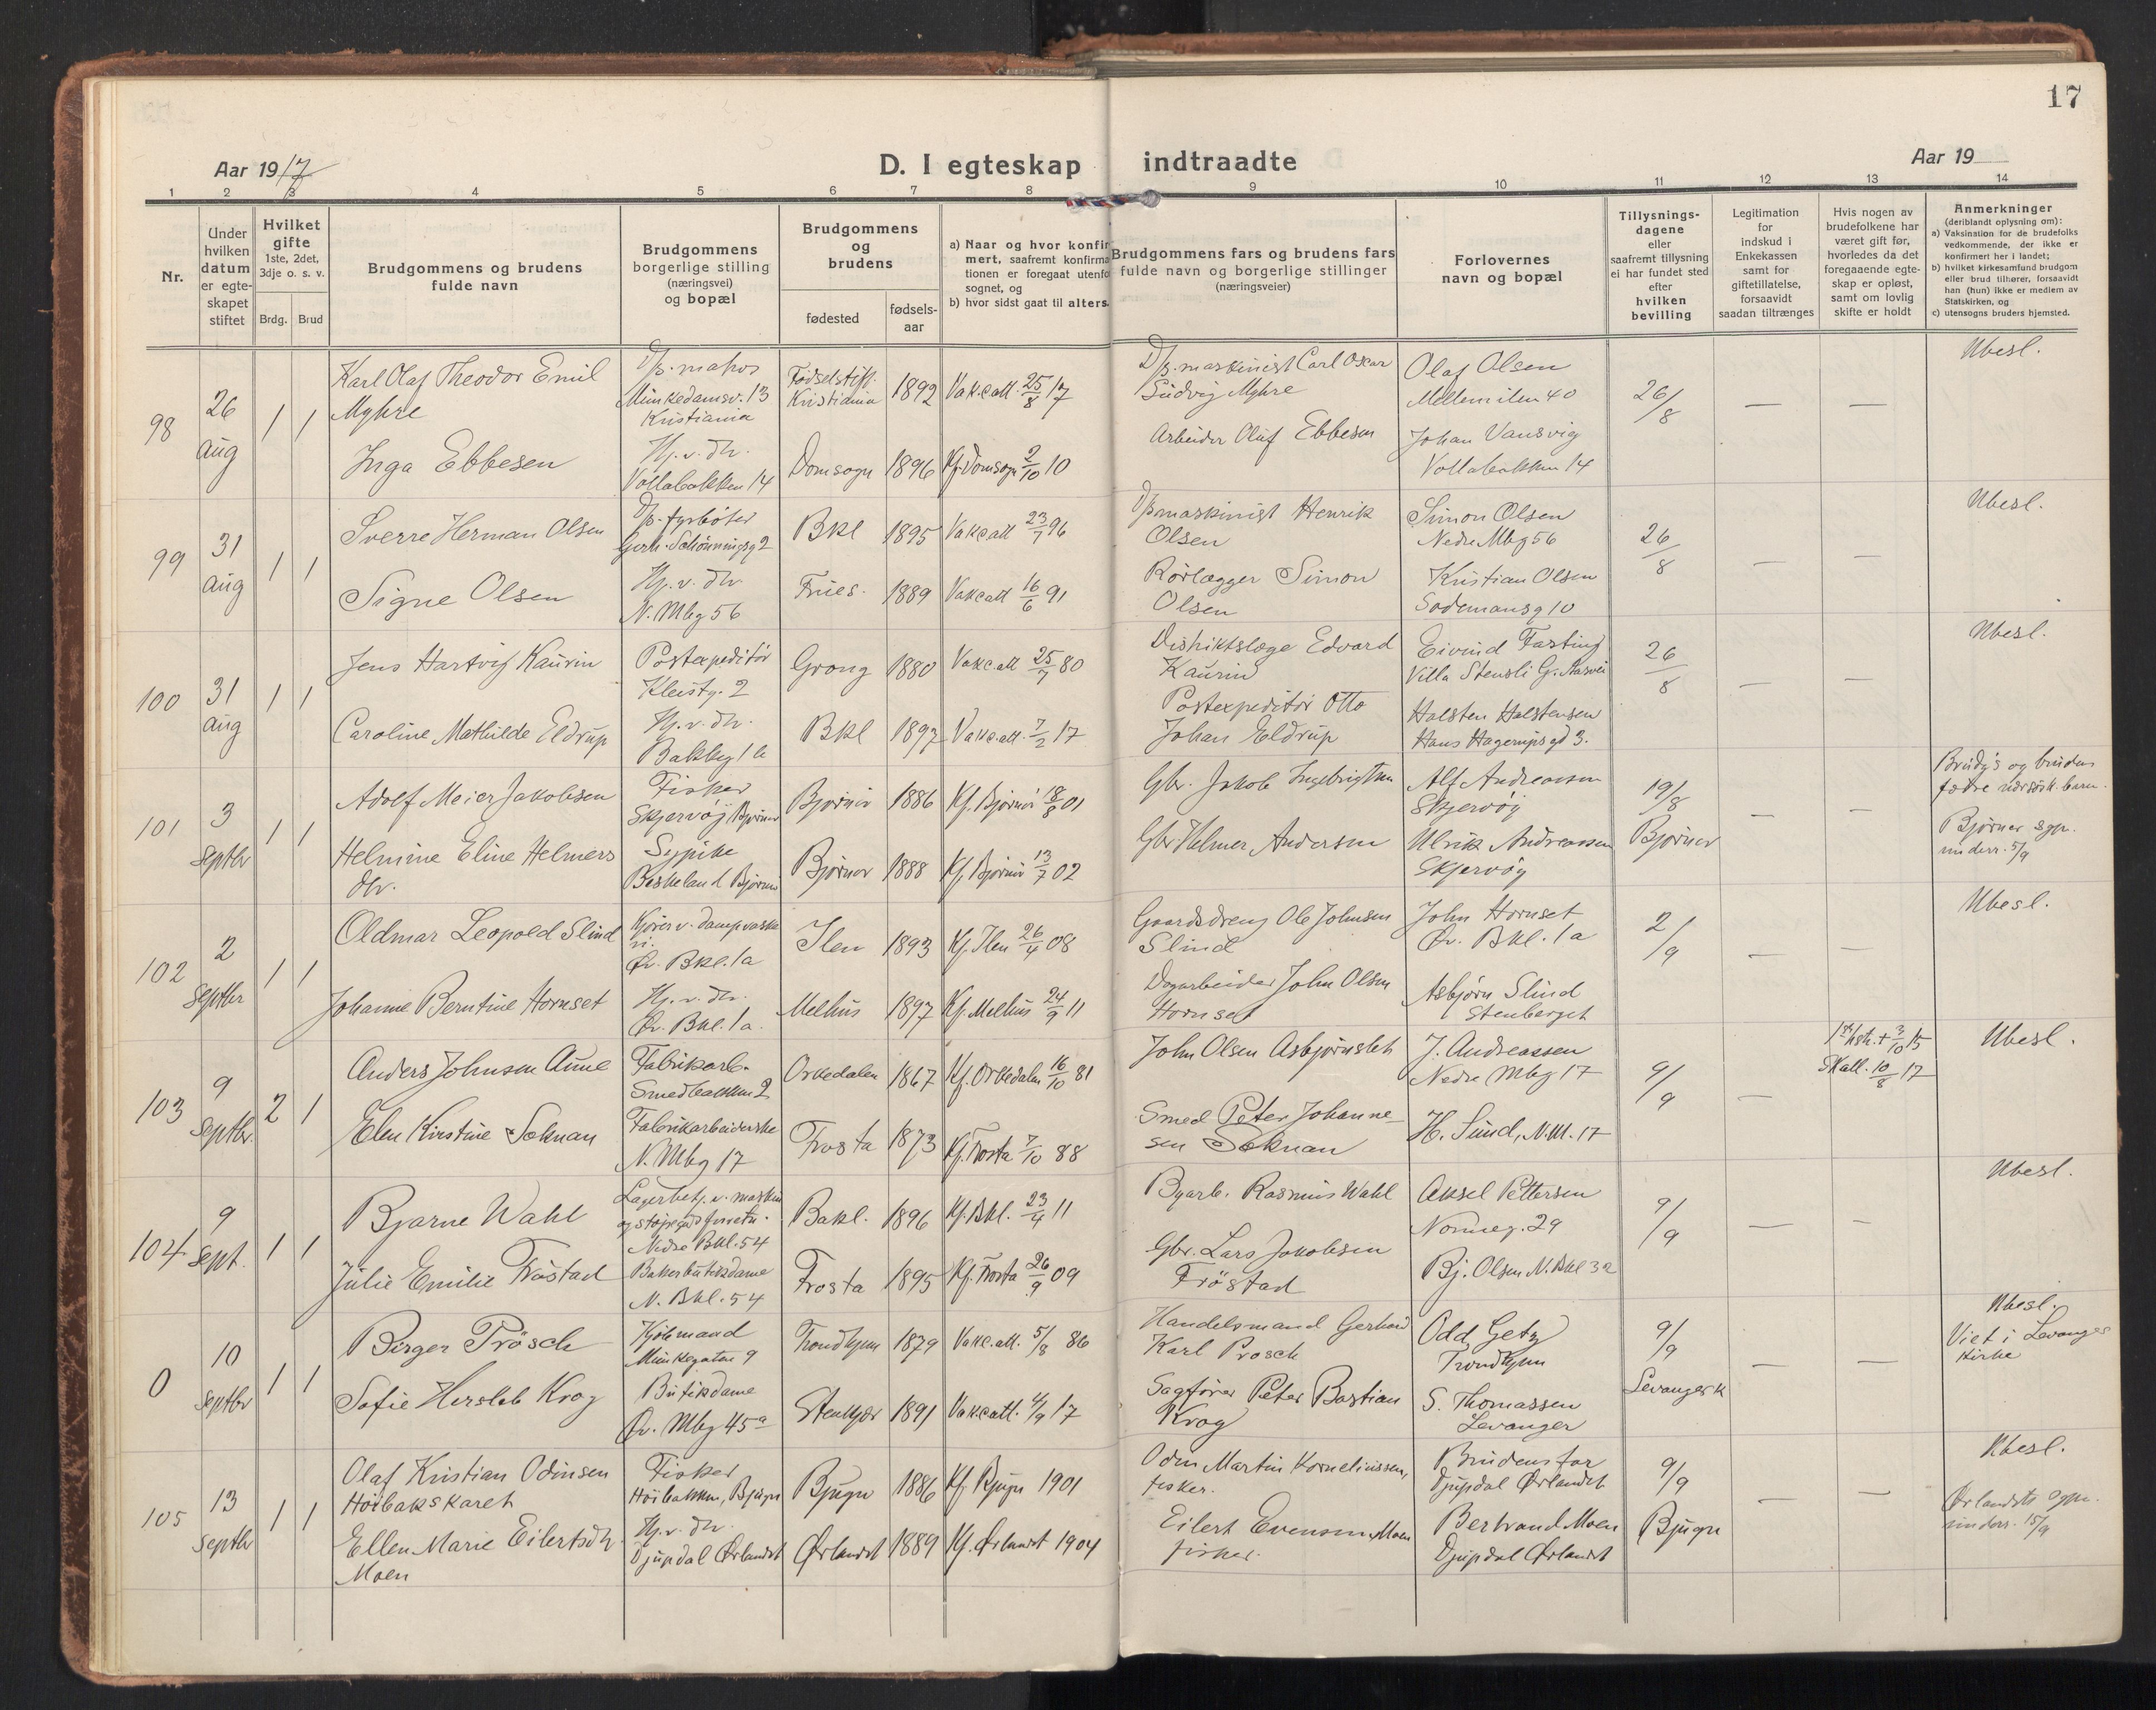 17
Aar 1917
D. I egteskap indtraadte
Aar 19
1 2 3 4 5 6 7 8 9 10 11 12 13 14
Nr.
Under hvilken datum er egte-skapet stiftet
Hvilket gifte 1ste, 2det, 3dje o. s. v.
Brdg. Brud
Brudgommens og brudens fulde navn
Brudgommens borgerlige stilling (næringsvei) og bopæl
Brudgommens og brudens
fødested
fødsels-aar
a) Naar og hvor konfir
mert, saafremt konfirma
tionen er foregaat utenfo
sognet, og
b) hvor sidst gaat til alters.
Brudgommens fars og brudens fars
fulde navn og borgerlige stillinger
(næringsveier)
Forlovernes
navn og bopæl
Tillysnings-
dagene
eller
saafremt tillysning
ei har fundet sted
efter
hvilken
bevilling
Legitimation
for
indskud i
Enkekassen
samt for
giftetillatelse,
forsaavidt
saadan tiltrænges
Hvis nogen av
brudefolkene har
været gift før,
hvorledes da det
foregaaende egte-
skap er opløst,
samt om lovlig
skifte er holdt
Anmerkninger
(deriblandt oplysning om):
a) Vaksination for de brudefolks
vedkommende, der ikke er
konfirmert her i landet;
b) hvilket kirkesamfund brudgom
eller brud tilhører, forsaavidt
han (hun) ikke er medlem av
Statskirken, og
c) utensogns bruders hjemsted.
98 26 Aug 1 1
Karl Olaf Theodor Emil
Myhre
D/p. matros
Munkedamsv. 13
Kristiania
Fødselstift.
Kristiania
1892
Vakc.att. 25/8 17
D/p. maskinist Carl Oskar
Ludvig Myhre
Olaf Olsen
Mellemilen 40
26/8 — —
Ubesl.
Inga Ebbesen
Hj. v. dtr.
Vollabakken 14
Domsogn 1896
Kf. Domsogn 2/10 10
Arbeider Oluf Ebbesen
Johan Vansvig
Vollabakken 14
99 31 Aug 1 1
Sverre Herman Olsen
D/p. fyrbøter
Gerh. Schønningsg 2
Bkl 1895
Vakc att 23/7 96
D/pmaskinist Henrik
Olsen
Simon Olsen
Nedre Mbg 56
26/8 — —
Ubesl.
Signe Olsen
Hj. v. dtr
N. Mbg 56
Frues. 1889
Vakc att 16/6 91
Rørlægger Simon
Olsen
Kristian Olsen
Sodemansg 10
100 31 Aug 1 1
Jens Hartvig Kaurin
Postexpeditør
Kleistg. 2
Grong 1880
Vakc.att 25/7 80
Distriktslæge Edvard
Kaurin
Eivind Fasting
Villa Stensli G. Aasvei
26/8 — —
Ubesl.
Caroline Mathilde Eldrup
Hj. v. dtr.
Bakkeg 1 b
Bkl 1897
Vakc.att. 7/2 17
Postexpeditør Otto
Johan Eldrup
Halsten Halstensen
Hans Hagerups gd 3.
101 3 Septbr 1 1
Adolf Meier Jakobsen
Fisker
Skjervøy Bjørnør
Bjørnør 1886
Kf. Bjørnør 18/8 01
Gbr. Jakob Ingebrigtsen
Alf Andreassen
Skjervøy
19/8 Bjørnør — —
Brudg's og brudens
fædre
Bjørnør sgn.
underr. 5/9
Helmine Eline Helmers
dtr.
Sypike
Beskeland Bjørnør
Bjørnør 1888
Kf. Bjørnør 13/7 02
Gbr Helmer Andersen
Ulrik Andreassen
Skjervøy
102 2 Septbr 1 1
Oldmar Leopold Slind
Kjører v. dampvaske
ri.
Øv. Bkl. 1a
Ilen 1893
Kf. Ilen 26/4 08
Gaardsdreng Ole Johnsen
Slind
John Hornset
Øv. Bkl. 1a
2/9 — —
Ubesl.
Johanne Berntine Hornset
Hj. v. dtr.
Øv. Bkl. 1a.
Melhus 1897
Kf. Melhus 24/9 11
Dagarbeider John Olsen
Hornset
Asbjørn Slind
Stenberget
103 9 Septbr. 2 1
Anders Johnsen Aune
Fabrikarb.
Smedbakken 2
Orkedalen 1867
Kf. Orkedalen 16/10 81
John Olsen Asbjørnslet
J. Andreassen
Nedre Mbg 17
9/9 —
1st hstr. + 3/10 15
Skatt. 10/8 17
Ubesl.
Elen Kirstine Soknan
Fabrikarbeiderske
N. Mbg 17
Frosta 1873
Kf. Frosta 7/10 88
Smed Peter Johanne-
sen Soknan
H. Sund, N.M. 17
104 9 Sept. 1 1
Bjarne Wahl
Lagerbetj. v. maskin
og støpegodsforretn.
Nedre Bkl. 54
Bakl. 1896
Kf. Bkl. 23/4 11
Byarb. Rasmus Wahl
Aksel Pettersen
Nonneg. 29
9/9 — —
Ubesl.
Julie Emilie Frøstad
Bakerbutikdame
N. Bkl. 54
Frosta 1895
Kf. Frosta 26/9 09
Gbr. Lars Jakobsen
Frøstad
Bj. Olsen N. Bkl 32
0 10 Septbr 1 1
Birger Prösch
Kjøbmand
Munkegaten 9
Trondhjem 1879
Vakc.att. 5/8 86
Handelsmand Gerhard
Karl Prosch
Odd Getz
Trondhjem
9/9 Levanger k — —
Ubesl.
Viet i Levanger
Kirke
Sofie Hersleb Krog
Butikdame
Øv. Mbg 45a
Stenkjær 1891
Vakc att. 4/9 17
Sagfører Peter Bastian
Krog
S. Thomassen
Levanger
105 13 Septbr 1 1
Olaf Kristian Odinsen
Höibakskaret
Fisker
Høibakken, Bjugn
Bjugn 1886
Kf Bjugn 1901
Odin Martin Korneliussen,
fisker.
Brudens far
Djupdal Ørlandet
9/9 Bjugn — —
Ubesl.
Ørlandets sgn.
underr. 15/9
Ellen Marie Eilertsdtr.
Moen
Hj. v. dtr.
Djupdal Ørlandet
Ørlandet 1889
Kf. Ørlandet 1904
Eilert Evensen Moen
fisker.
Bertrand Moen
Djupdal Ørlandet